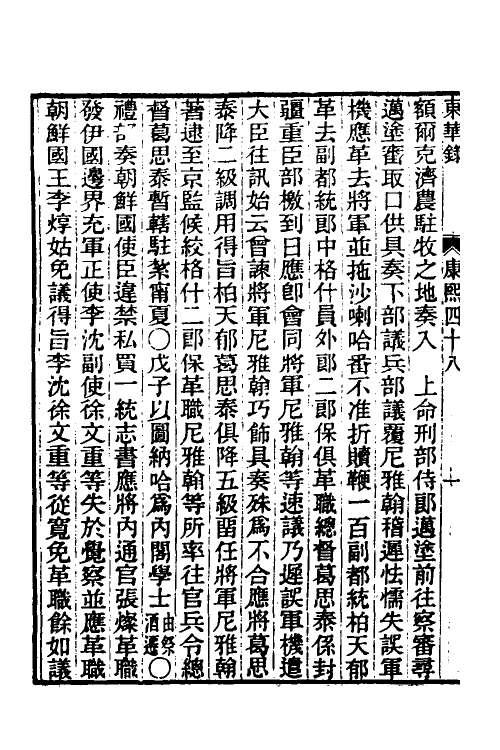 東華錄　康熙四十八　一
額爾克濟農駐牧之地奏入　上命刑部侍郎邁塗前往察審尋
邁塗審取口供具奏下部議兵部議覆尼雅翰稽遲怯懦失誤軍
機應革去將軍並拖沙喇哈番不准折贖鞭一百副都統柏天郁
革去副都統郎中格什員外郎二郎保俱革職總督葛思泰係封
疆重臣部檄到日應即會同將軍尼雅翰等速議乃遲誤軍機遣
大臣往訊始云曾諫將軍尼雅翰巧飾具奏殊為不合應將葛思
泰降二級調用得旨柏天郁葛思泰俱降五級畱任將軍尼雅翰
著逮至京監候絞格什二郎保革職尼雅翰等所率往官兵令總
督葛思泰暫轄駐紮甯夏〇戊子以圖納哈為內閣學士由祭酒遷〇
禮部奏朝鮮國使臣違禁私買一統志書應將內通官張燦革職
發伊國邊界充軍正使李沈副使徐文重等失於覺察並應革職
朝鮮國王李焞姑免議得旨李沈徐文重等從寬免革職餘如議